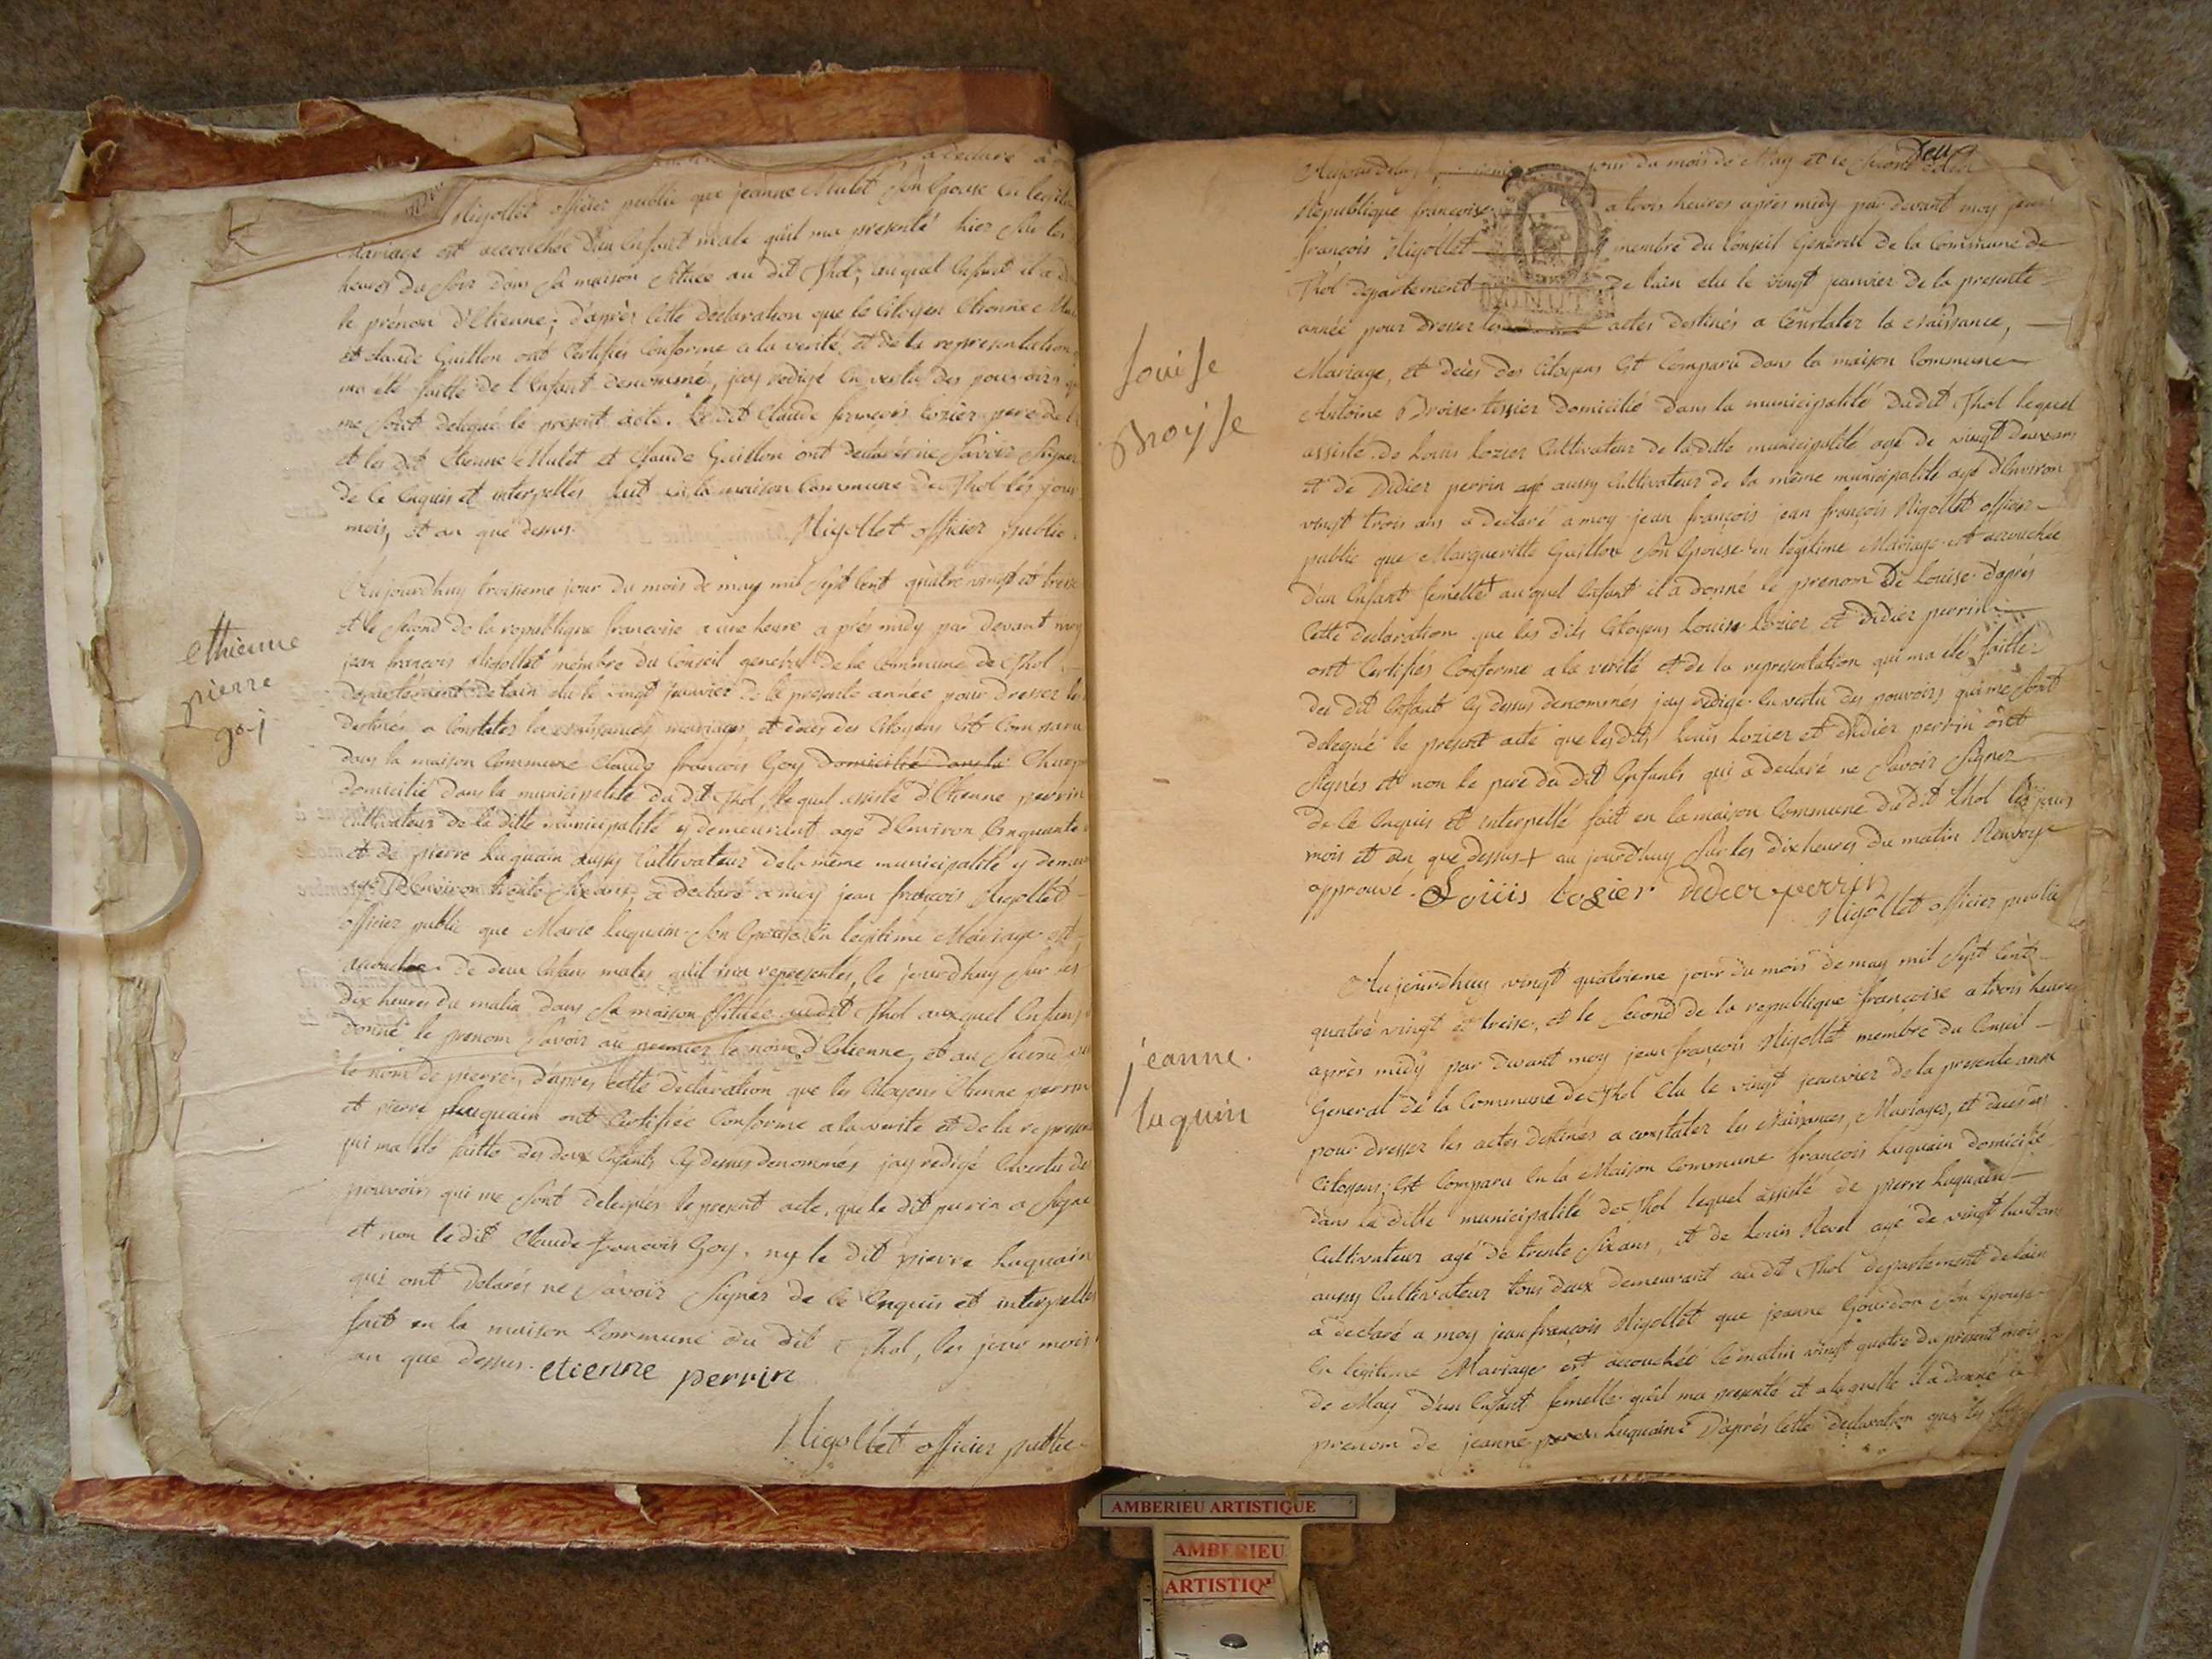 a declaré a
Nigollet officier public que jeanne Mulet son Epouse En legitime
Mariage est accouchée d'un Enfant male qu'il ma presenté hier sur les
heures du soir dans sa maison située au dit Thol, auquel Enfant il a
le prénom d'Etienne; d'après Cette declaration que le Citoyen Etienne
et claude Guillon ont Certifiés Conforme a la verité, et de la representation
ma été faitte de l'Enfant denommé, jay redigé En vertu des pouvoirs
me sont delegué le present acte. Le dit Claude françois Lozier pere de
et les dit Etienne Mulet et Claude Guillon ont declarés ne Savoir Signer
de Ce Enquis et interpellés fait en la maison Commune de Thol les jour
mois, et an que dessus. Nigollet officier public
ethienne
pierre
goj
Aujourdhuy troisieme jour du mois de may mil sept Cent quatre vingt et treize
et le second de la republique francoise a une heure a près midy par devant moy
jean francois Nigollet membre du Conseil general de la Commune de Thol
departement de lain elu le vingt janvier de la presente année pour dresser les
destinés a Constater les naissances mariages, et decès des Citoyens Est Comparu
dans la maison Commune Claude francois Goy domicilié dans la
domicilié dans la municipalité du dit Thol, lequel assisté d'Etienne perrin
Cultivateur de la ditte municipalité y demeurant agé d'Environ Cinquante
et de pierre Luquain aussy Cultivateur de la même municipalité y
agé d'Environ trente six ans, a declaré a moy jean françois Nigollet
officier public que Marie Luquain son Epouse En legitime Mariage est
accouchée de deux Enfans males qu'il ma representés, le jourdhuy sur les
dix heures du matin dans sa maison située audit Thol auxquel Enfans
donné le prenom Savoir au premier le nom d'Etienne, et au second
le nom de pierre, d'apres Cette declaration que les Citoyens Etienne perrin
et pierre Luquain ont Certifiée Conforme a la verité et de la
qui ma été faitte des deux Enfants Cy dessus denommés jay redigé En vertu des
pouvoirs qui me sont delegués le present acte, que le dit perrin a Signé
et non le dit Claude francois Goy, ny le dit pierre Luquain
qui ont declarés ne Savoir Signer de Ce Enquis et interpellés
fait en la maison Commune du dit Thol, les jour mois
an que dessus. etienne perrin
Nigollet officier public
Aujourdhuy jour du mois de May et le Second
Republique françoise a trois heures après midy par devant moy jean
françois Nigollet membre du Conseil General de la Commune de
Thol departement de lain elu le vingt jeanvier de la presente
année pour dresser les actes destinés a Constater la Naissance,
Mariage, et decès des Citoyens Est Comparu dans la maison Commune
Louise
Broysse
Antoine Broise tissier domicilié dans la municipalité dudit Thol lequel
assisté de Louis Lozier Cultivateur de laditte municipalité agé de vingt deux ans
et de Didier perrin agé aussy Cultivateur de la même municipalité agé d'Environ
vingt trois ans a declaré a moy jean françois jean françois Nigollet officier
public que Margueritte Guillon son Epouse en legitime Mariage est accouchée
d'un Enfant femelle auquel Enfant il a donné le prenom de Louise d'après
Cette declaration que les dits Citoyens Louis Lozier et Didier perrin
ont Certifiés Conforme a la verité et de la representation qui ma été faitte
du dit Enfant Cy dessus denommés jay redigé En vertu des pouvoirs qui me sont
delegué le present acte que lesdits Louis Lozier et Didier perrin ont
Signés et non le pere du dit Enfants qui a declaré ne Savoir Signer
de Ce Enquis et interpellé fait en la maison Commune du dit Thol les jours
mois et an que dessus + au jourdhuy sur les dix heures du matin Renvoye
approuvé. Louis Logier Didier perrin
Nigollet officier public
jeanne
luquin
Aujourdhuy vingt quatrieme jour du mois de may mil Sept Cent
quatre vingt et treise, et le Second de la republique françoise a trois heures
après midy par devant moy jean françois Nigollet membre du Conseil
General de la Commune de Thol Elu le vingt jeanvier de la presente année
pour dresser les actes destinés a constater les Naissances, Mariages, et decès des
Citoyens; Est Comparu En la Maison Commune françois Luquain domicilié
dans la ditte municipalité de Thol lequel assisté de pierre Luquain
Cultivateur agé de trente six ans, et de Louis Revel agé de vingt huit ans
aussy Cultivateur tous deux demeurant au dit Thol departement de lain
a declaré a moy jean françois Nigollet que jeanne Gourdon son Epouse
En legitime Mariage est accouchée Ce matin vingt quatre du present mois
de May d'un Enfant femelle qu'il ma presenté et a laquelle il a donné le
prenom de jeanne Luquain D'après Cette declaration que les
AMBERIEU ARTISTIQUE
AMBERIEU
ARTISTIQ